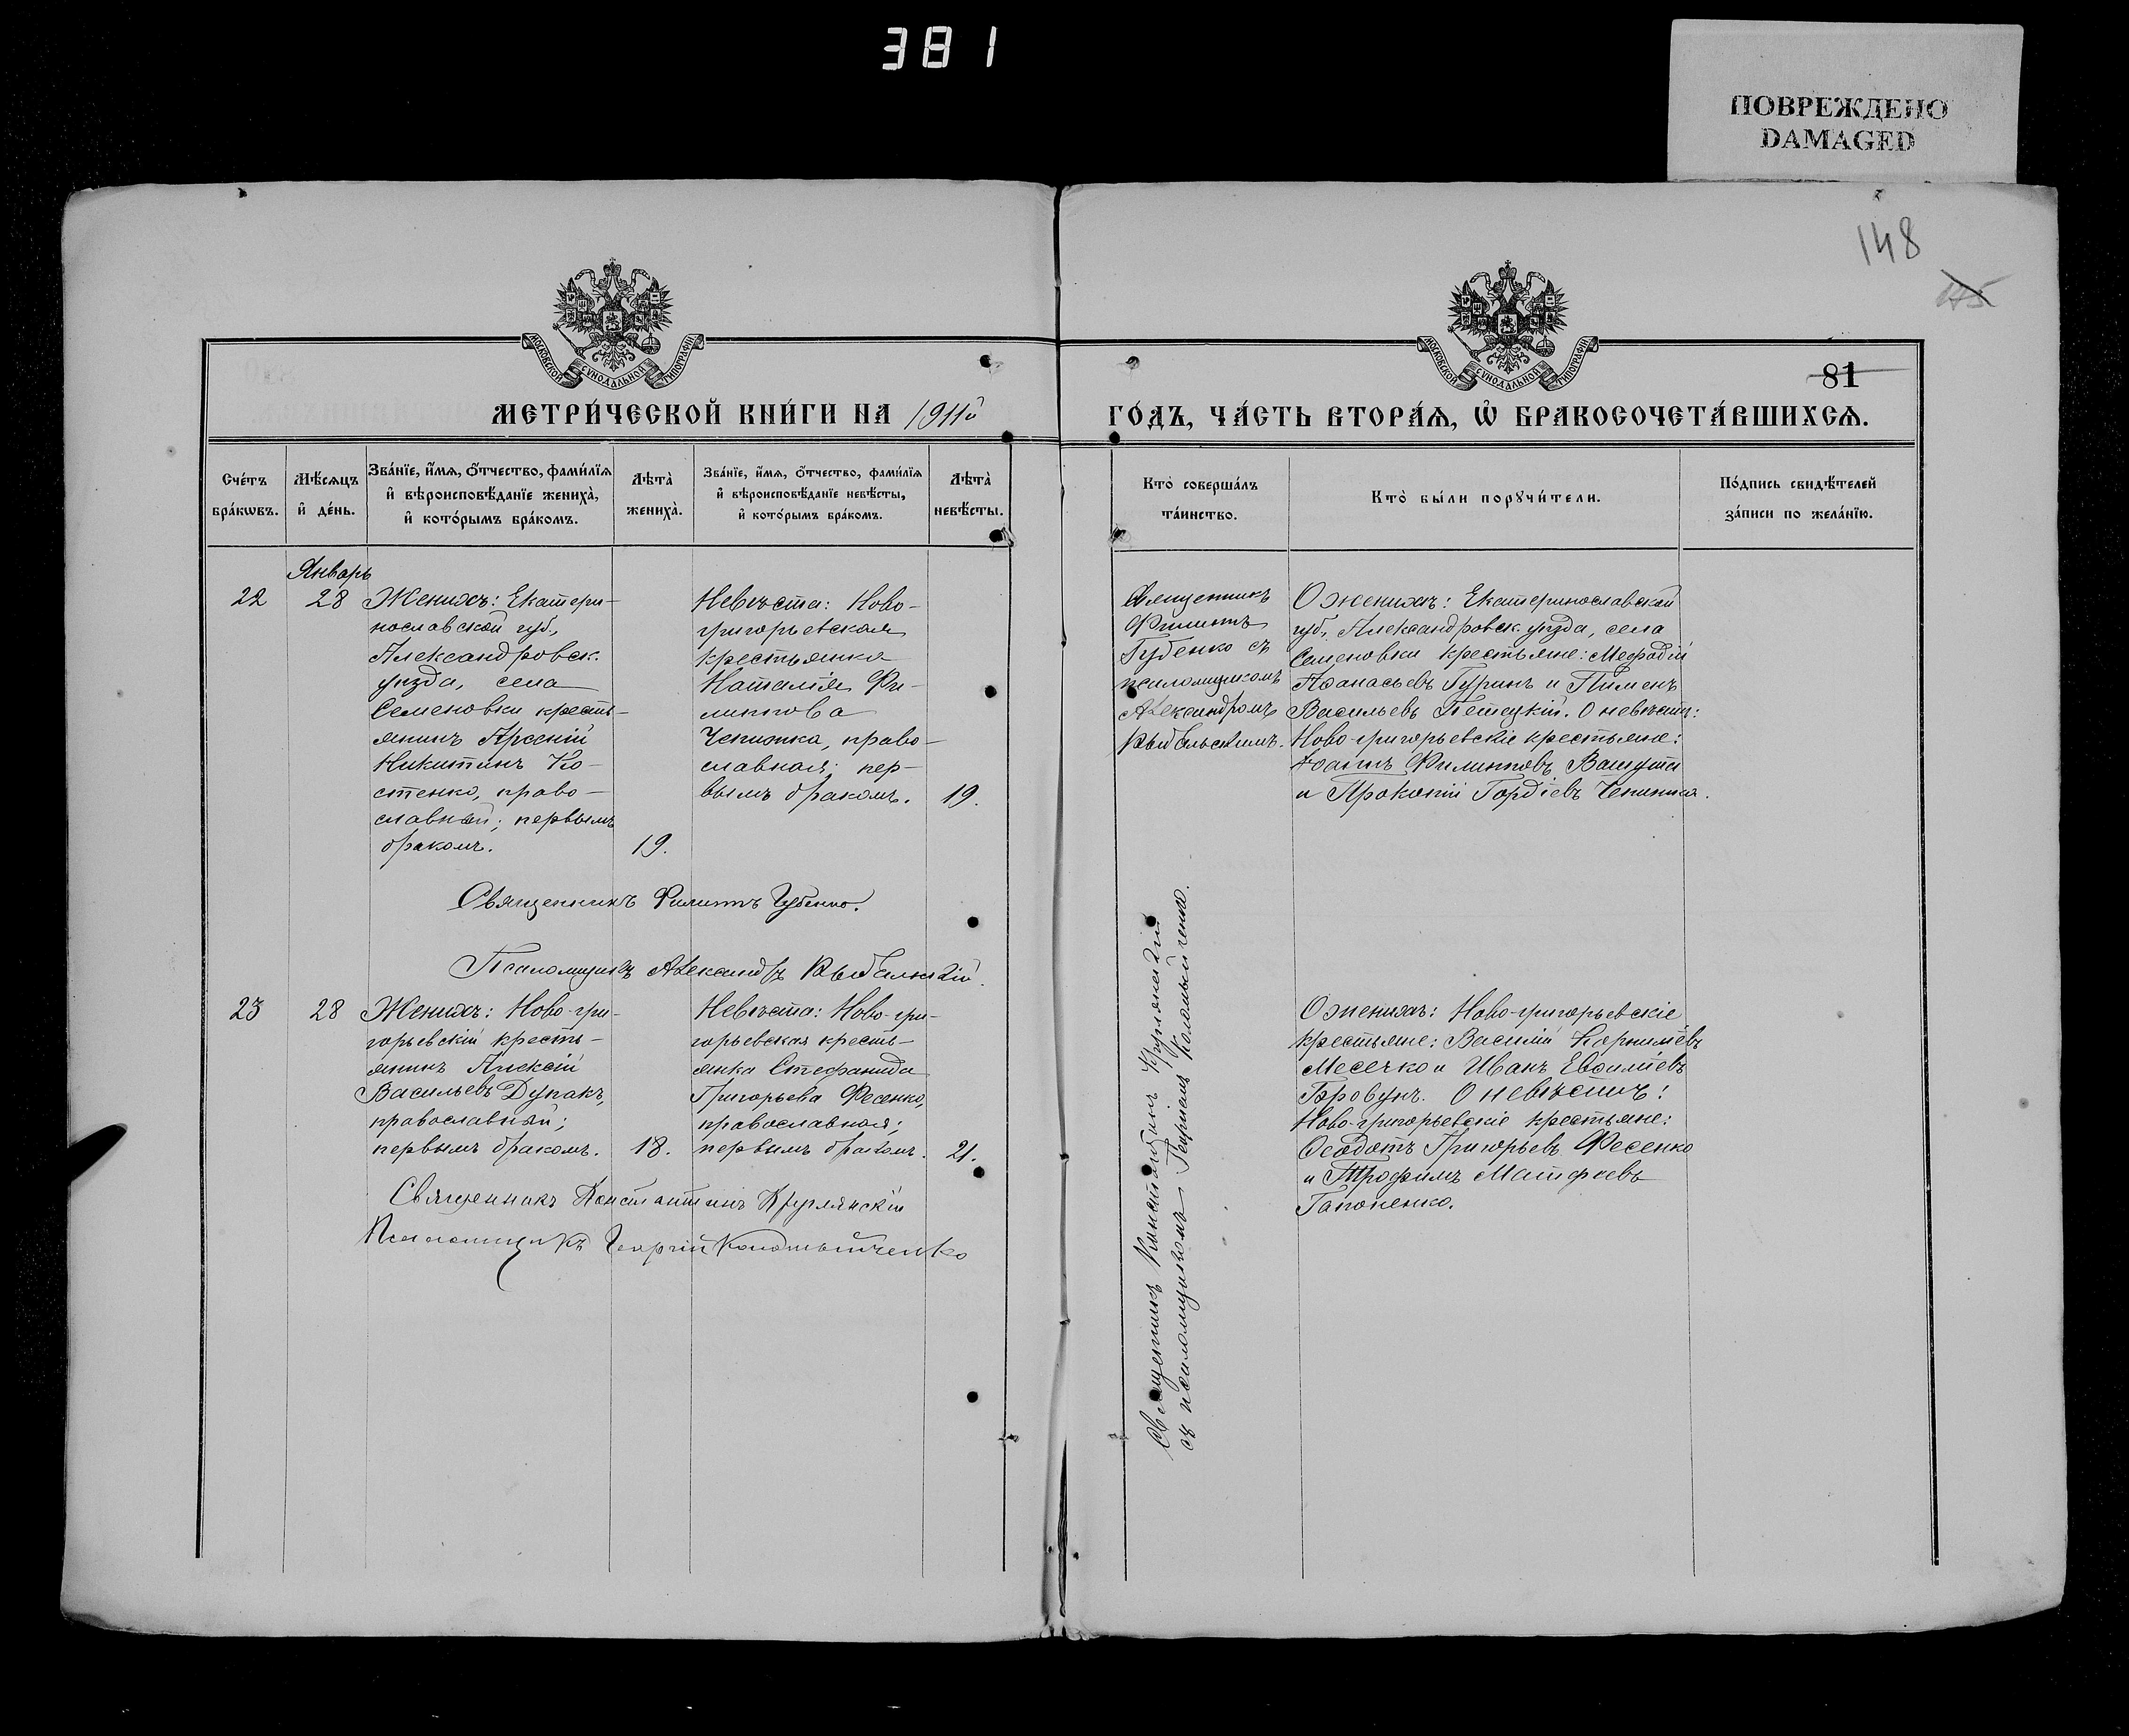 381
ПОВРЕЖДЕНО
DAMAGED
148
81
МОСКОВСКОЙ СУНОДАЛЬНОЙ ТИПОГРАФІИ
МОСКОВСКОЙ СУНОДАЛЬНОЙ ТИПОГРАФІИ
МЕТРИ́ЧЕСКОЙ КНИ́ГИ НА 1911й
ГО́ДЪ, ЧА́СТЬ ВТОРА́Ѧ, Ѽ БРАКОСОЧЕТА́ВШИХСѦ.
Сче́тъ бра́кѡвъ.
Мѣ́сѧцъ и҆ де́нь.
Зва́нїе, и҆́мѧ, о҆́тчество, фами́лїѧ и҆ вѣроисповѣ́данїе жениха̀, и҆ кото́рымъ бра́комъ.
Лѣта̀ жениха̀.
Зва́нїе, и҆́мѧ, о҆́тчество, фами́лїѧ и҆ вѣроисповѣ́данїе невѣ́сты, и҆ кото́рымъ бра́комъ.
Лѣта̀ невѣ́сты.
Кто̀ соверша́лъ та́инство.
Кто̀ бы́ли порꙋчи́тели.
По́дпись свидѣ́телей за́писи по жела́нїю.
Январь
22
28
Женихъ: Екатери-
нославской губ.,
Александровск.
уѣзда, села
Семеновки кресть-
янинъ Арсеній
Никитинъ Ко-
стенко, право-
славный; первымъ
бракомъ.
19.
Невѣста: Ново-
григорьевская
крестьянка
Наталія Фи-
липпова
Чепижка, право-
славная; пер-
вымъ бракомъ.
19.
Священникъ
Филиппъ
Губенко съ
псаломщикомъ
Александромъ
О женихѣ: Екатеринославской
губ., Александровск. уѣзда, села
Семеновки крестьяне: Мефодій
Аѳанасьевъ Гуринъ и Пименъ
Васильевъ Петецкій. О невѣстѣ:
Ново-григорьевскіе крестьяне:
Іоаннъ Филипповъ
и Прокопій Гордіевъ Чепижка.
Священникъ Филиппъ Губенко.
Псаломщикъ Александръ
23
28
Женихъ: Ново-гри-
горьевскій кресть-
янинъ Алексій
Васильевъ Дупакъ,
православный;
первымъ бракомъ.
18.
Невѣста: Ново-гри-
горьевская кресть-
янка Стефанида
Григорьева Фесенко,
православная;
первымъ бракомъ.
21.
Священникъ Константинъ Круглянскій
съ псаломщикомъ Георгіемъ Коломыйченко.
О женихѣ: Ново-григорьевскіе
крестьяне: Василій Корниліевъ
Месечко и Иванъ Евѳиміевъ
Бровунъ. О невѣстѣ:
Ново-григорьевскіе крестьяне:
Ѳеодотъ Григорьевъ Фесенко
и Трофимъ Матфеевъ
Гапоненко.
Священникъ Константинъ Круглянскій
Псаломщикъ Георгій Коломыйченко